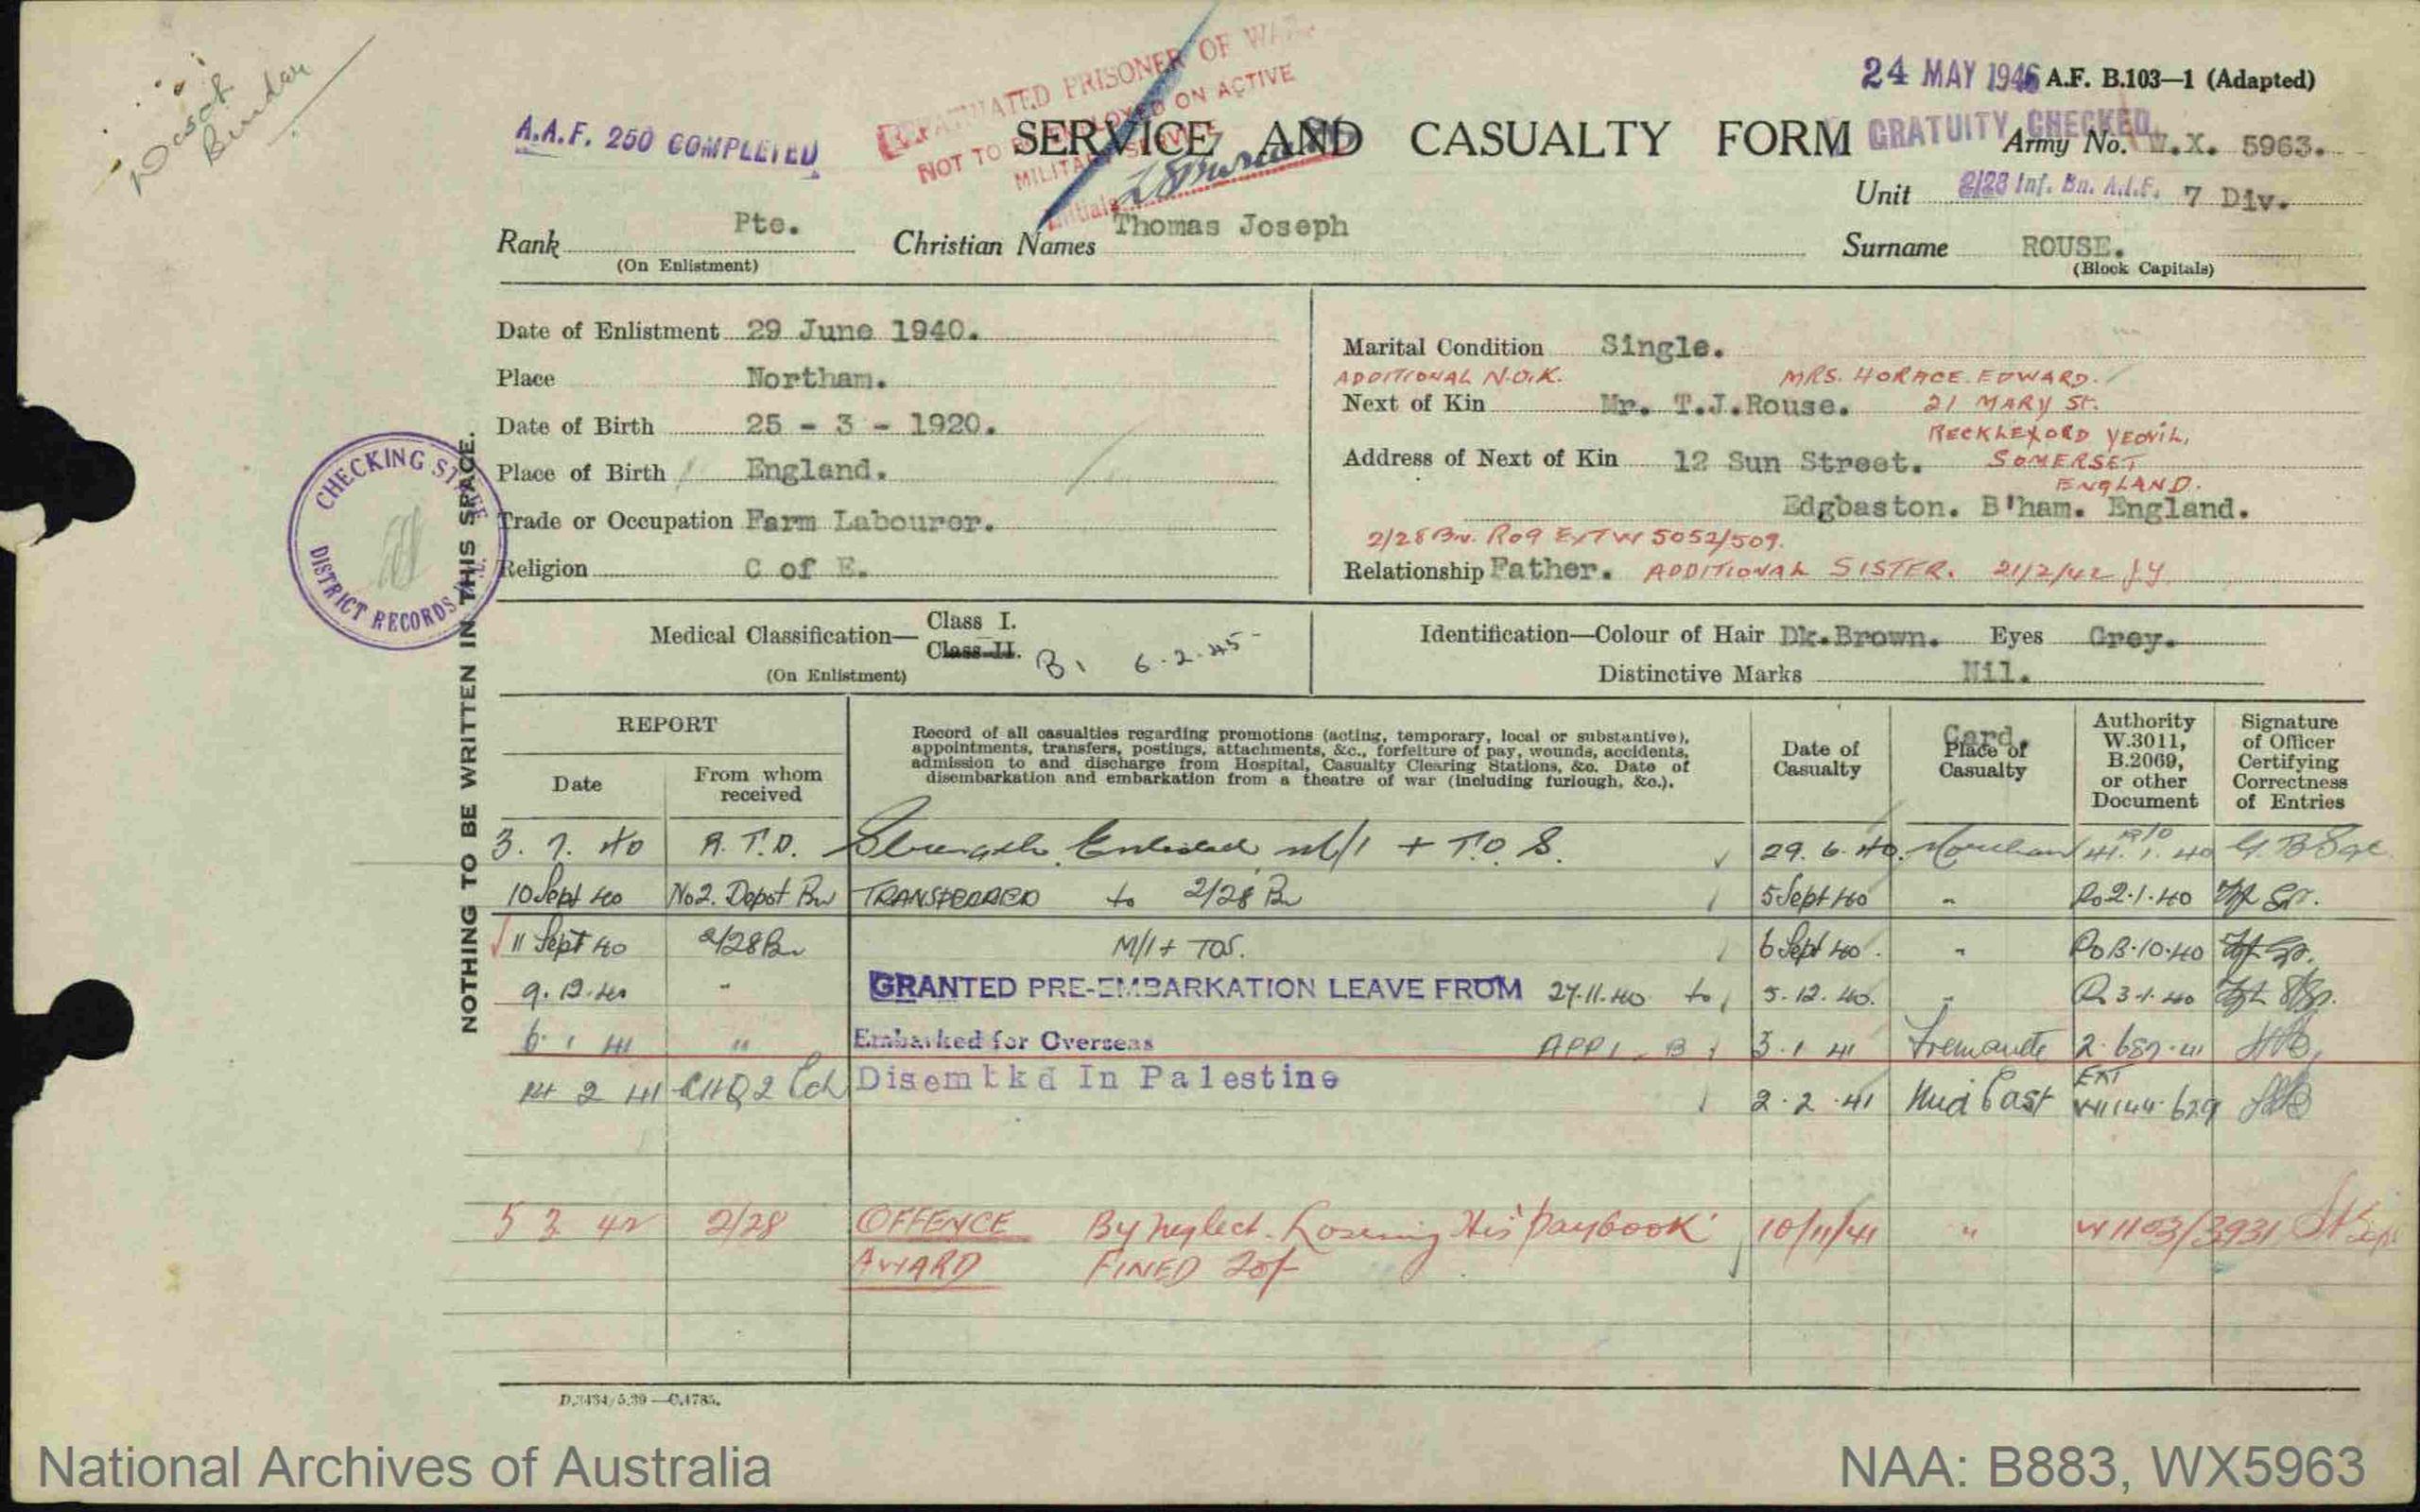 24 MAY 1946 A.F. B.103—1 (Adapted)
A.A.F. 250 COMPLETED
PRISONER OF WAR
NOT TO BE EMPLOYED ON ACTIVE
MILITARY SERVICE
Initials
SERVICE AND CASUALTY FORM
GRATUITY CHECKED
Army No. W.X. 5963.
Unit 2/28 Inf. Bn. A.I.F. 7 Div.
Rank Pte. Christian Names Thomas Joseph Surname ROUSE.
(On Enlistment) (Block Capitals)
Date of Enlistment 29 June 1940.
Place Northam.
Date of Birth 25 - 3 - 1920.
Place of Birth England.
Trade or Occupation Farm Labourer.
Religion C of E.
Marital Condition Single.
ADDITIONAL N.O.K. MRS. HORACE EDWARD.
Next of Kin Mr. T.J.Rouse. 21 MARY ST.
RECKLEFORD YEOVIL,
Address of Next of Kin 12 Sun Street. SOMERSET
ENGLAND.
Edgbaston. B'ham. England.
2/28 Bn. Ro9 EXTW 5052/509.
Relationship Father. ADDITIONAL SISTER. 21/2/42
CHECKING
DISTRICT RECORDS
NOTHING TO BE WRITTEN IN THIS SPACE.
Medical Classification— Class I.
Class II. B1 6.2.45
(On Enlistment)
Identification—Colour of Hair Dk.Brown. Eyes Grey.
Distinctive Marks Nil.
REPORT
Date
From whom received
Record of all casualties regarding promotions (acting, temporary, local or substantive), appointments, transfers, postings, attachments, &c., forfeiture of pay, wounds, accidents, admission to and discharge from Hospital, Casualty Clearing Stations, &c. Date of disembarkation and embarkation from a theatre of war (including furlough, &c.).
Date of Casualty
Card.
Place of Casualty
Authority W.3011, B.2069, or other Document
Signature of Officer Certifying Correctness of Entries
3. 7. 40 R.T.D. Strength Enlisted m/1 + T.O.S. 29.6.40. Northam
10 Sept 40 No2. Depot Bn TRANSFERRED to 2/28 Bn 5 Sept 40 " Ro2.1.40
11 Sept 40 2/28 Bn M/I + TOS. 6 Sept 40. "
9.12.40 " GRANTED PRE-EMBARKATION LEAVE FROM 27.11.40 to 5.12.40. " Ro 3.1.40
6 1 41 " Embarked for Overseas APP1. B 3.1.41 Fremantle 2.687.41
14 2 41 GHQ 2 Ech Disembkd In Palestine 2.2.41 Mid East EXT
5 3 42 2/28 OFFENCE By neglect. Loseing His 'paybook' 10/11/41 " W1103/3931
AWARD FINED 20/-
D.3434/5.39—C.4785.
National Archives of Australia
NAA: B883, WX5963